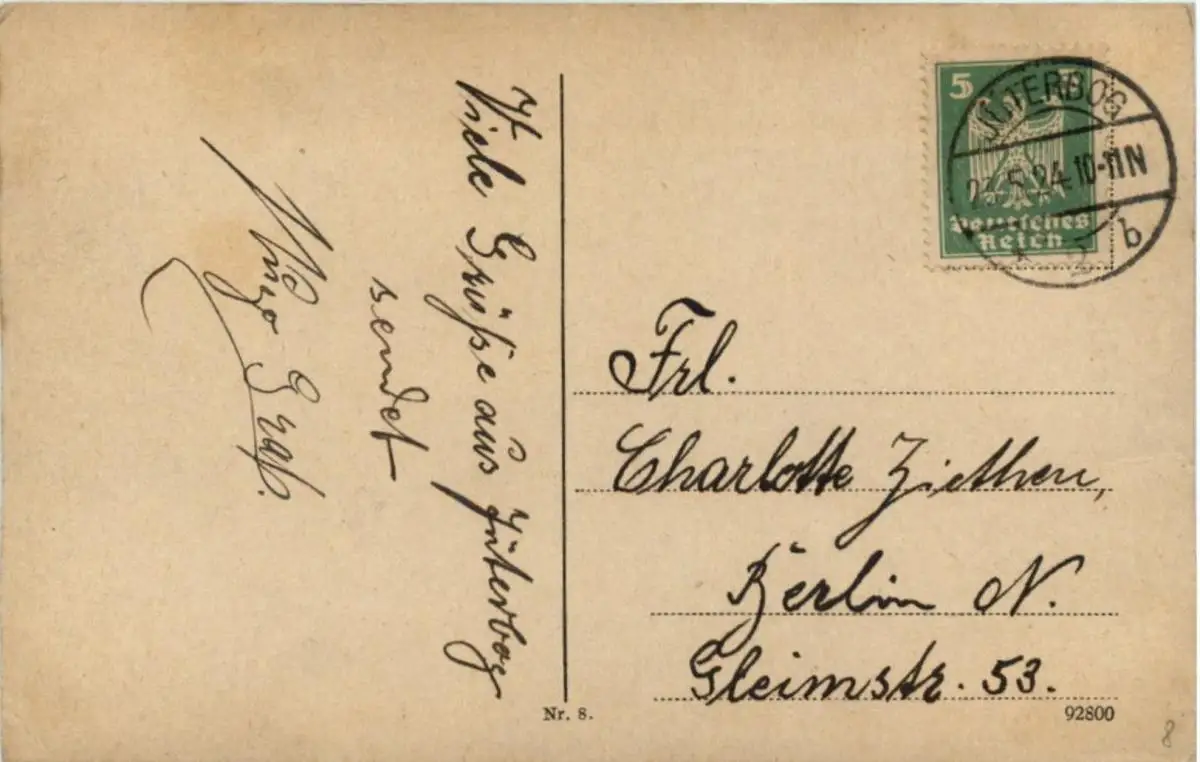 Viele Grüße aus Jüterbog
sendet
Hugo Graf.
5 5
Deutsches
Reich
JÜTERBOG
.5.24.10-11N
b
Frl.
Charlotte Ziethen,
Berlin N.
Gleimstr. 53.
Nr. 8.
92800
8